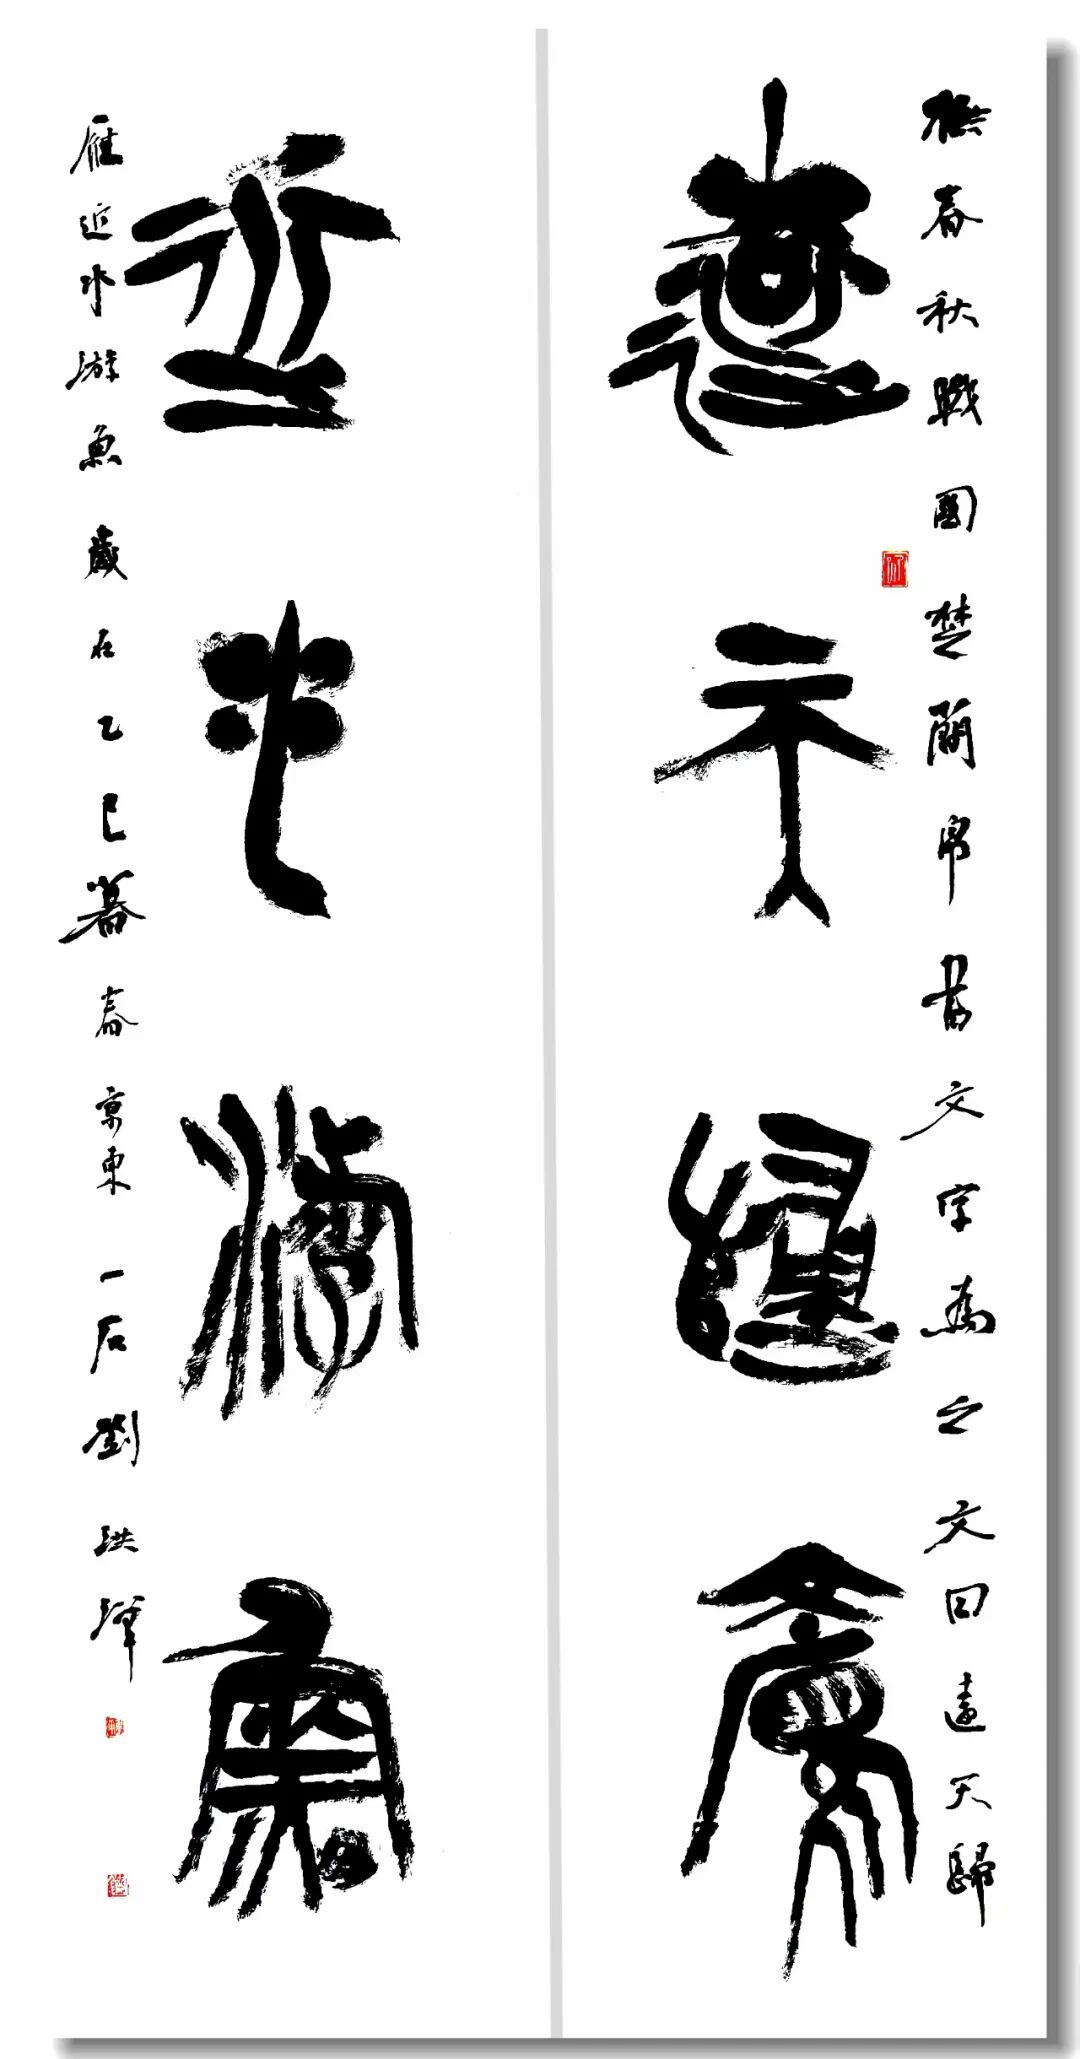 橅春秋戰國楚簡帛書文字為之文曰遠天歸
遠天歸雁
近水游魚
雁近水游魚歲在乙巳暮春京東一石劉洪